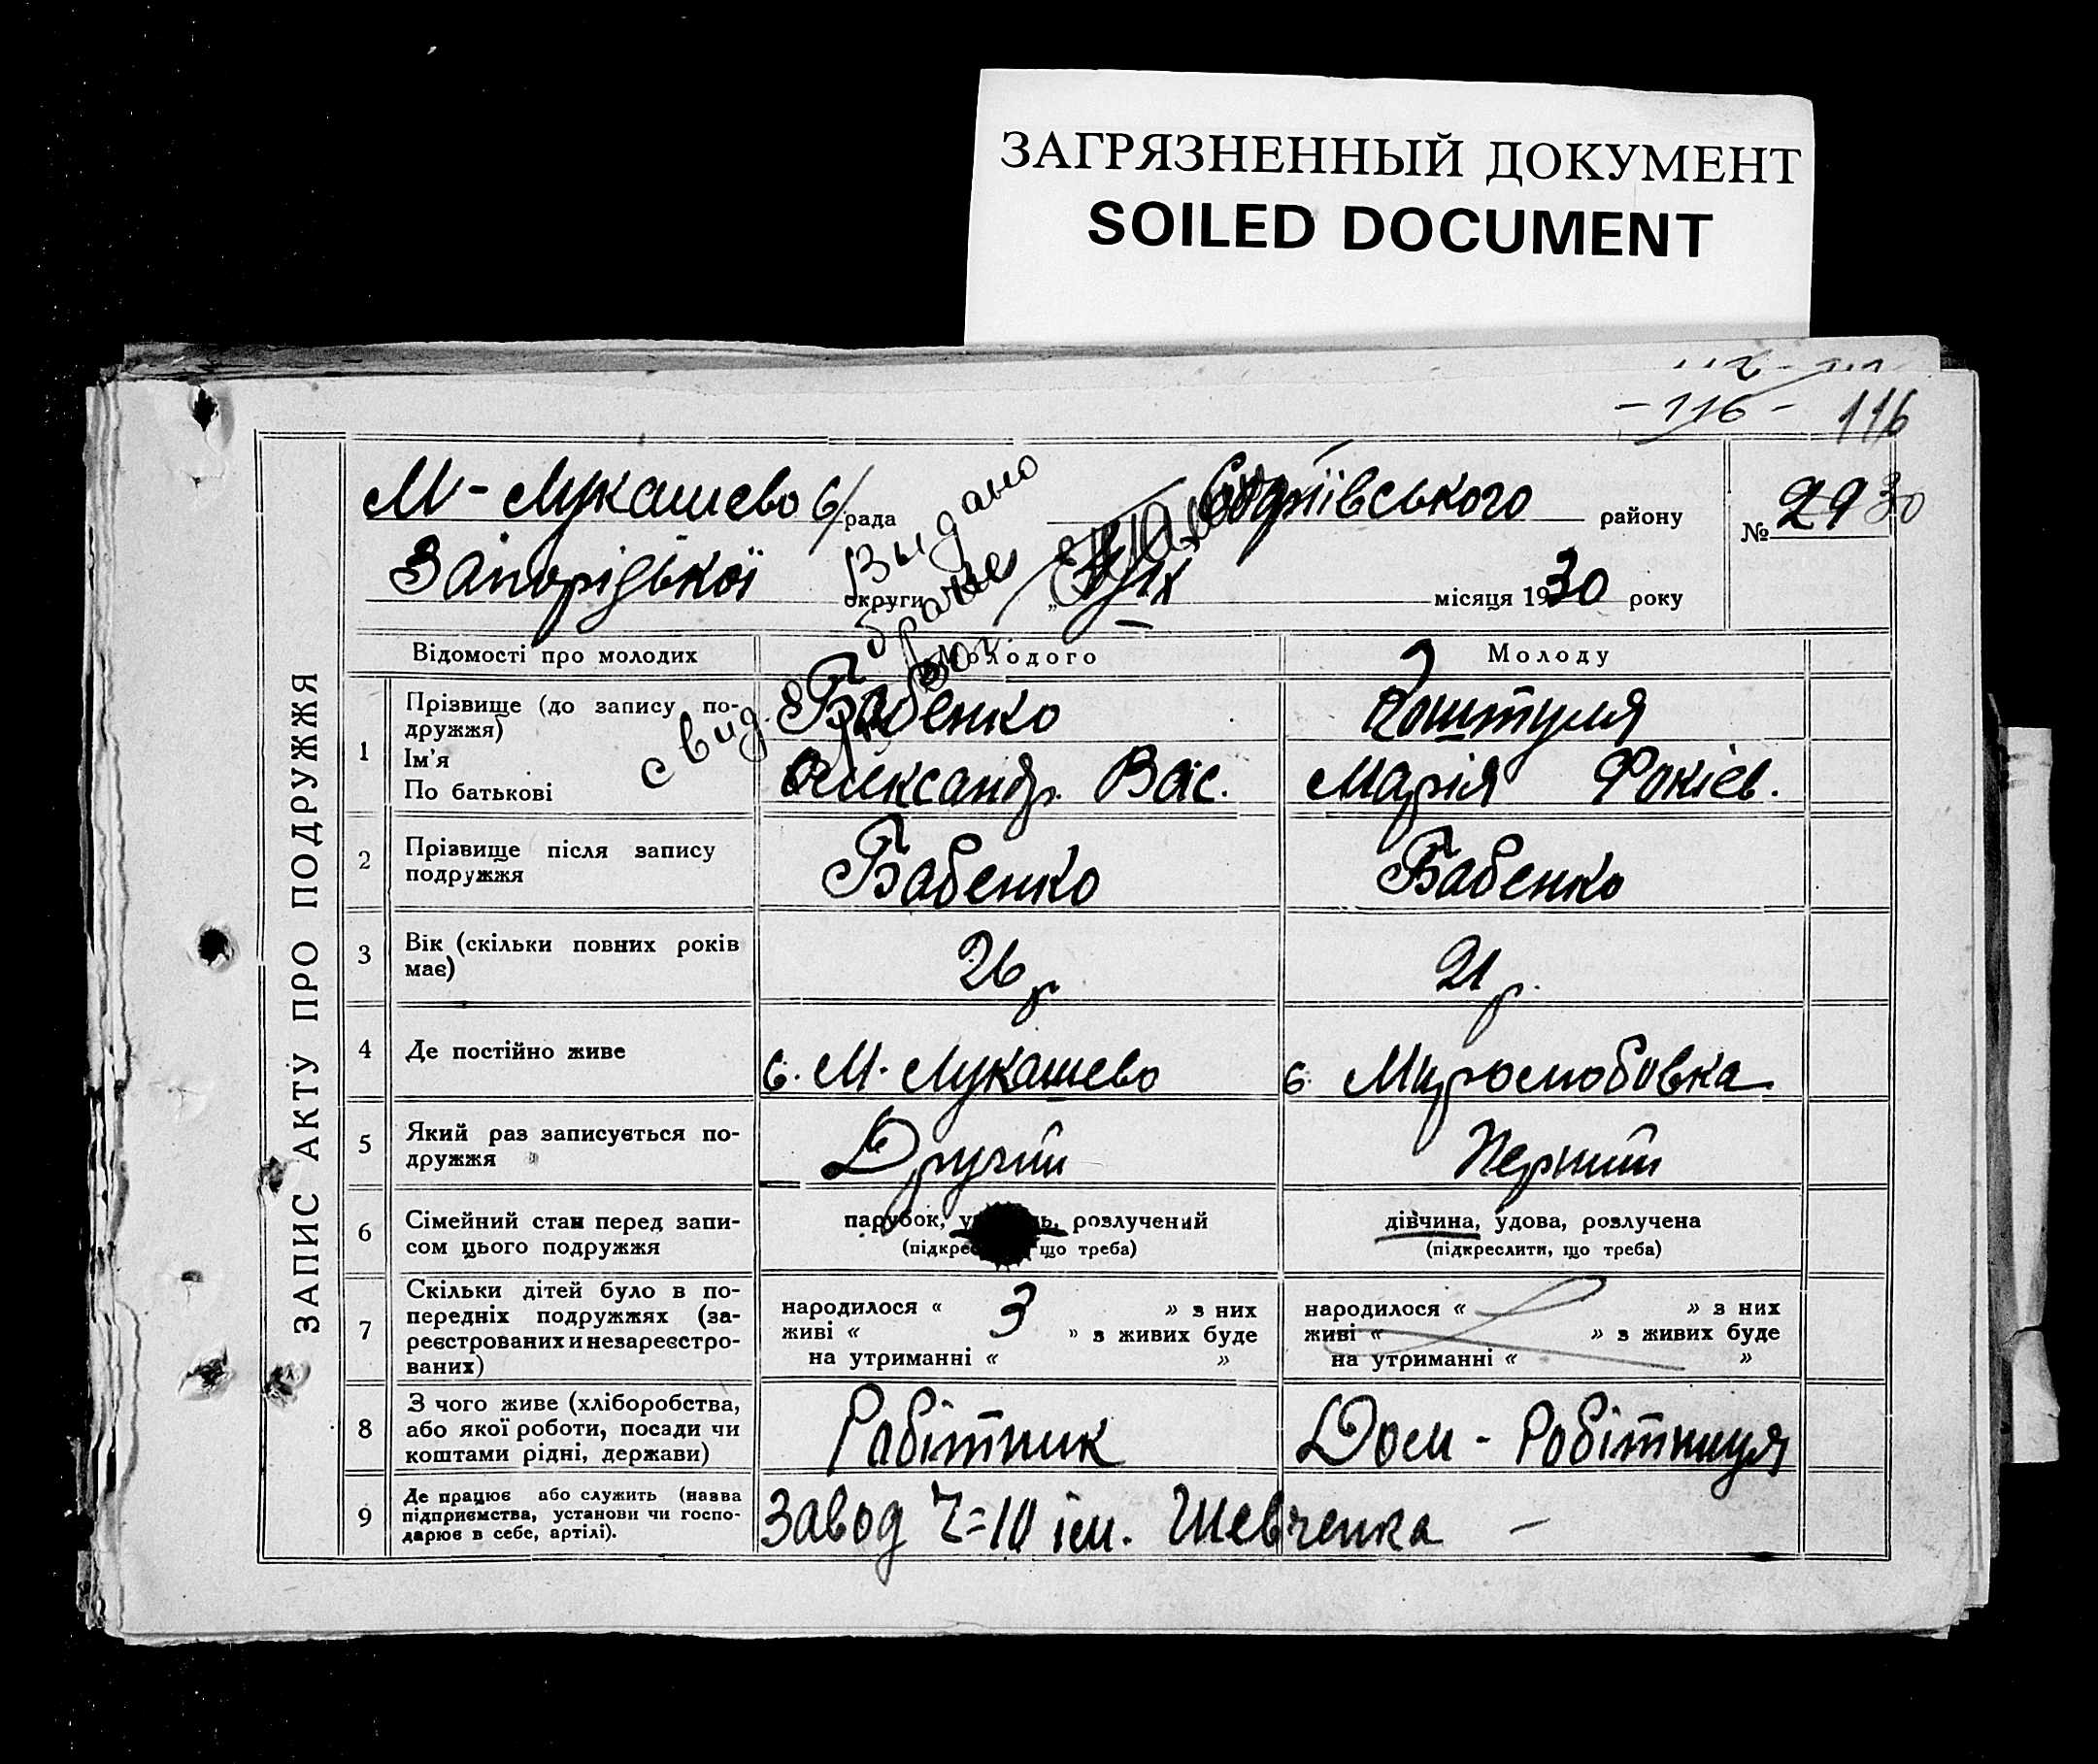 ЗАГРЯЗНЕННЫЙ ДОКУМЕНТ
SOILED DOCUMENT
-116- 116
М-Лукашево с/рада Софіївського району № 29 30
Запорізької округи IX місяця 1930 року
Видано
свид. о браке
ЗАПИС АКТУ ПРО ПОДРУЖЖЯ
Відомості про молодих Молодого Молоду
1 Прізвище (до запису по-
дружжя) Бабенко
Ім'я
По батькові Олександр. Вас. Марія Фокіев.
2 Прізвище після запису
подружжя Бабенко Бабенко
3 Вік (скільки повних років
має) 26 р. 21 р.
4 Де постійно живе с. М. Лукашево с. Миролюбовка
5 Який раз записується по-
дружжя Другий Перший
6 Сімейний стан перед запи-
сом цього подружжя
парубок, розлучений дівчина, удова, розлучена
що треба) (підкреслити, що треба)
7 Скільки дітей було в по-
передніх подружжях (за-
реєстрованих и незареєстро-
ваних)
народилося « 3 » з них народилося « » з них
живі « » з живих буде живі « » з живих буде
на утриманні « » на утриманні « »
8 З чого живе (хліборобства,
або якої роботи, посади чи
коштами рідні, держави) Робітник Дом-Робітниця
9 Де працює або служить (назва
підприємства, установи чи госпо-
дарює в себе, артілі). Завод Ч=10 ім. Шевченка –